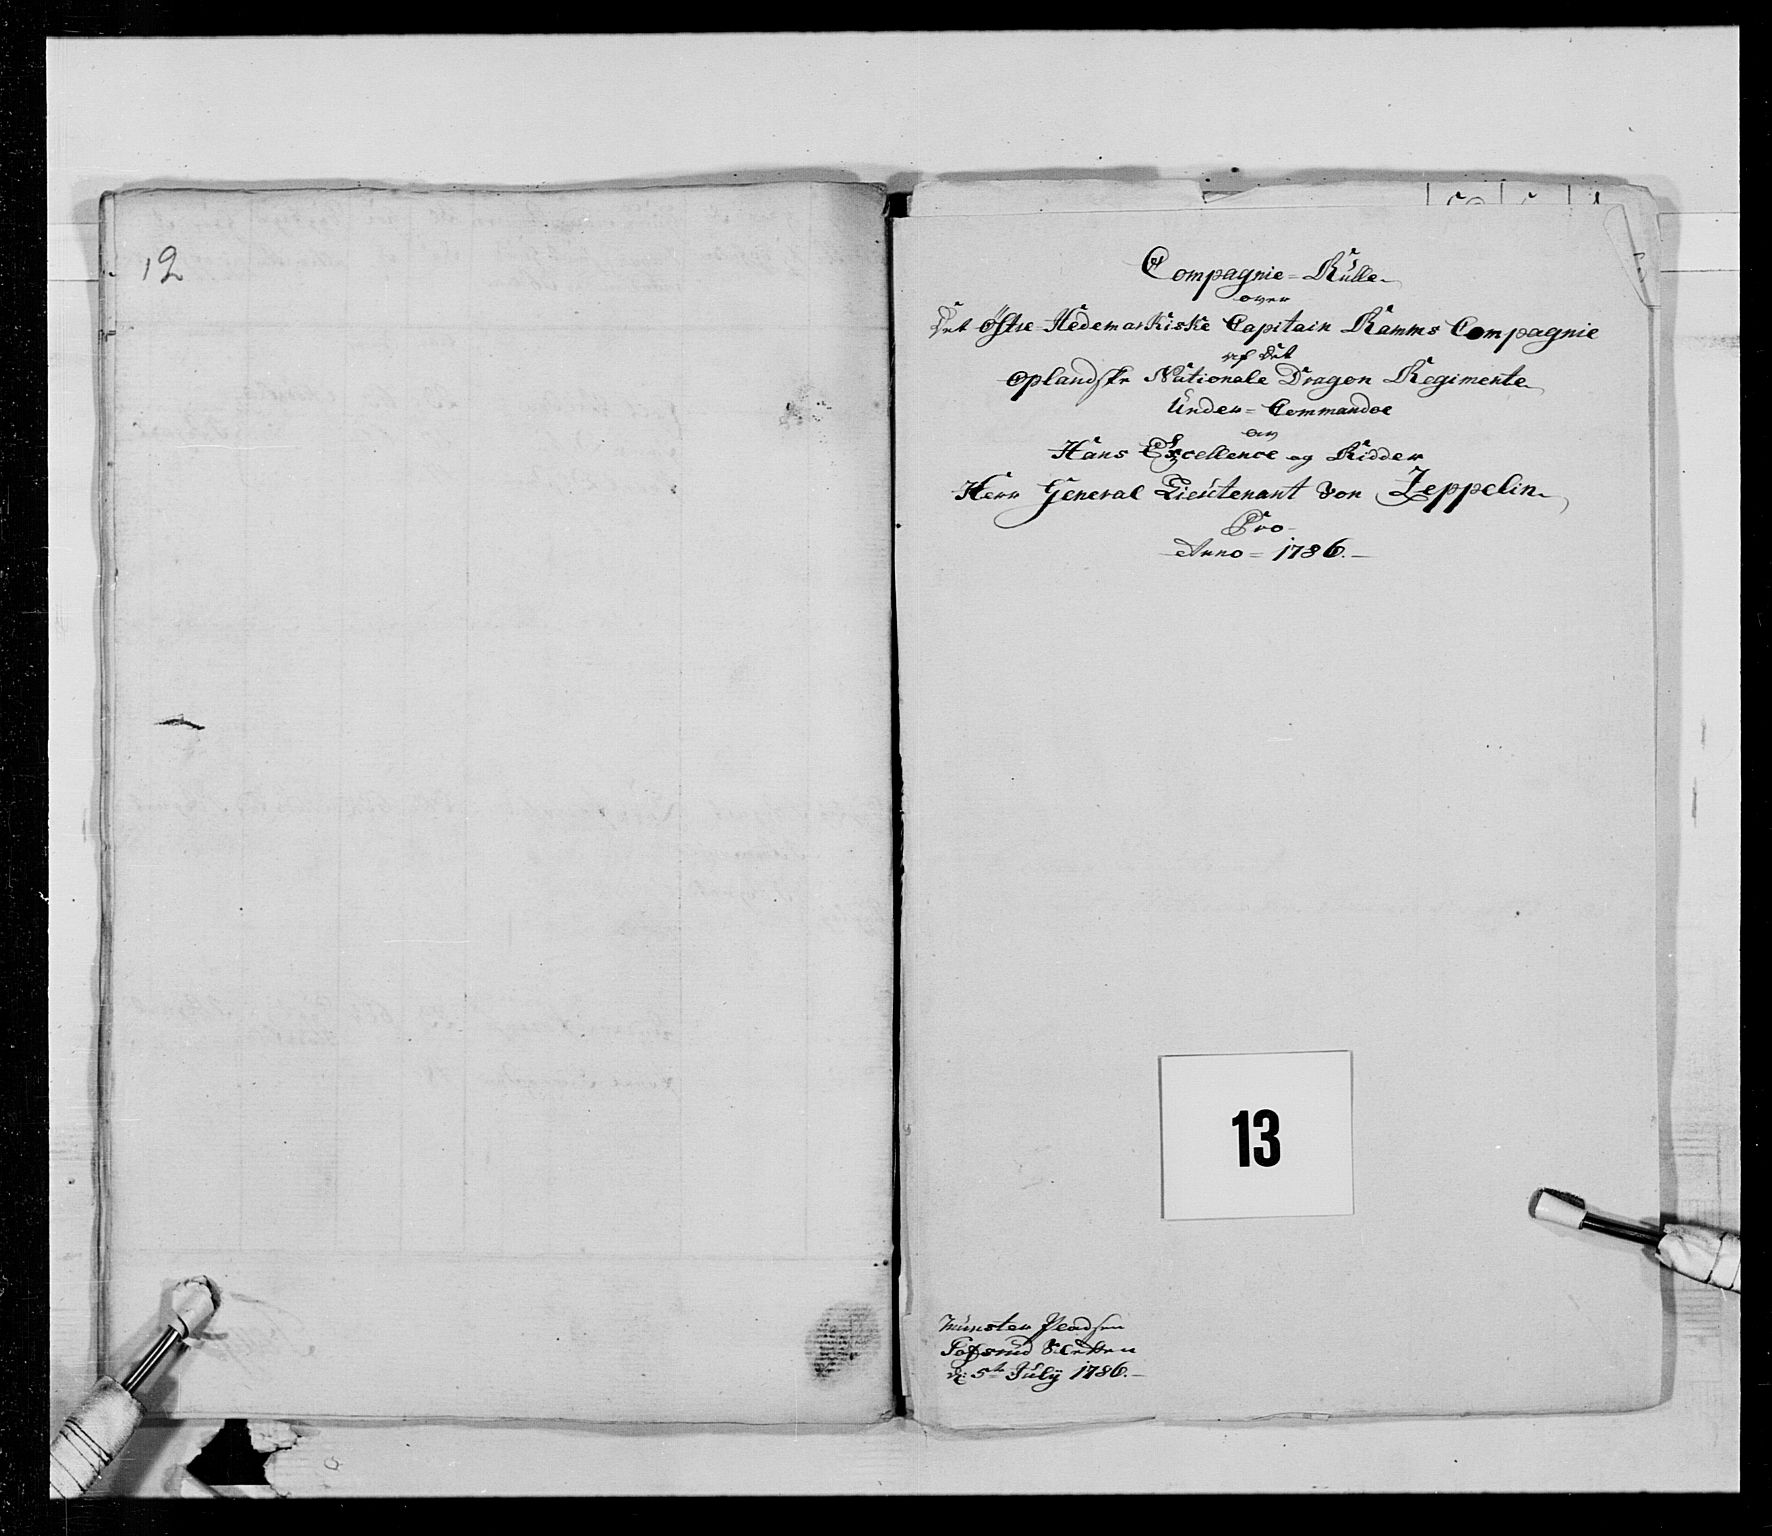 12
Compagnie = Rulle
over
Det Østre Hedemarkiske Capitain Ramms Compagnie
af det
Oplandske Nationale Dragon Regimente
Under = Commandoe
av
Hans Excellence og Ridder
Herr General Lieutenant Von Zeppelin
Pro
Anno = 1786.
13
Munster
d: 5te July 1786.